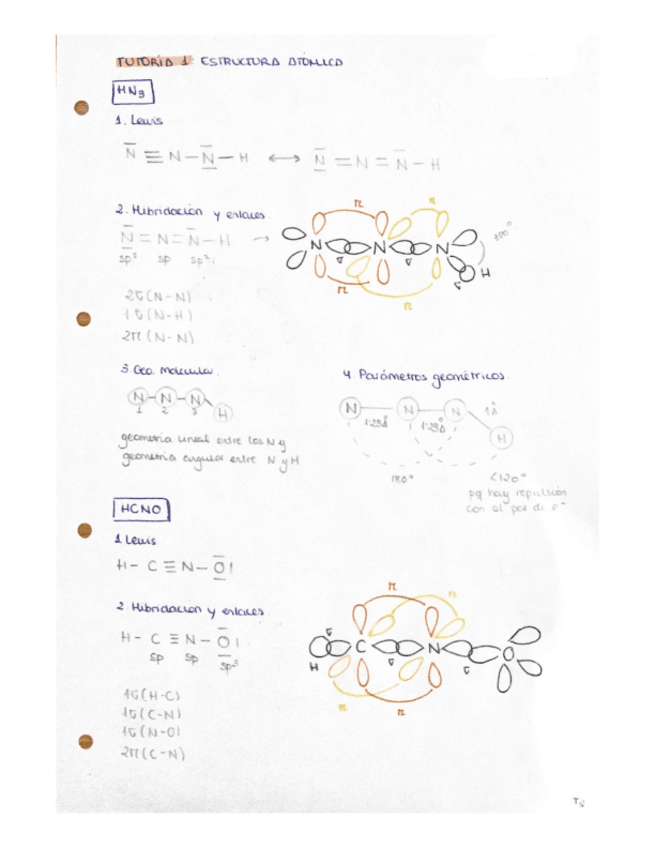 TUTORÍA 1 ESTRUCTURA ATÓMICA
HN3
1. Lewis
N ≡ N - N - H ↔ N = N = N - H
2. Hibridación y enlaces.
N = N = N - H →
sp² sp sp²
π π
N N N H
σ σ σ
π π
100°
2σ (N-N)
1σ (N-H)
2π (N-N)
3. Geo. molecular.
N - N - N
1 2 3 H
geometría lineal entre los N y
geometría angular entre N y H
4. Parámetros geométricos.
N N N 1Å
1'29Å H
180° <120°
pq hay repulsión
con el par de e⁻
HCNO
1 Lewis
H - C ≡ N - O|
2. Hibridación y enlaces.
H - C ≡ N - O|
sp sp sp³
π π
σ C N O
H σ σ
π π
1σ (H-C)
1σ (C-N)
1σ (N-O)
2π (C-N)